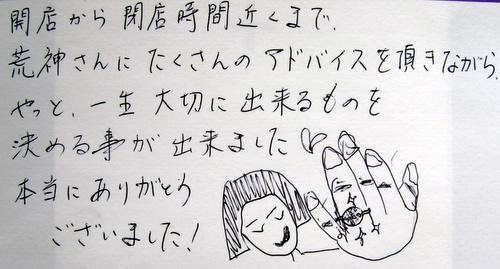 開店から 閉店時間近くまで、
荒神さんに たくさんの アドバイスを頂きながら、
やっと、一生 大切に 出来るものを
決める事が 出来ました♡
本当に ありがとう
ございました！